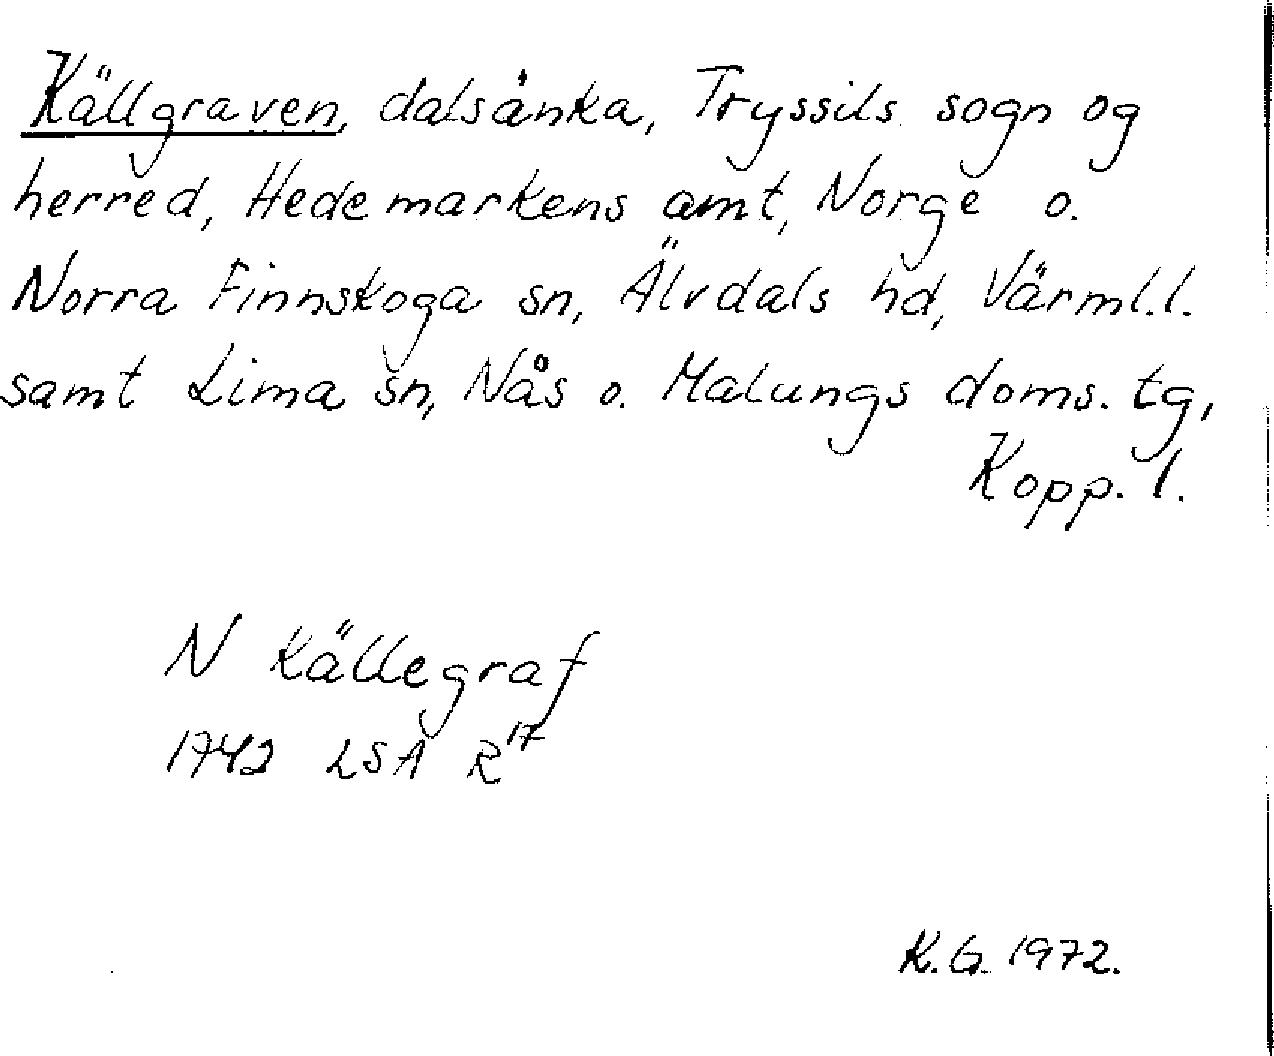 Källgraven, dalsänka, Tryssils sogn og
herred, Hedemarkens amt, Norge o.
Norra Finnskoga sn, Älvdals hd, Värml.l.
samt Lima sn, Nås o. Malungs doms. tg,
Kopp. l.
N Källegraf
1742 LSA R17
K.G. 1972.